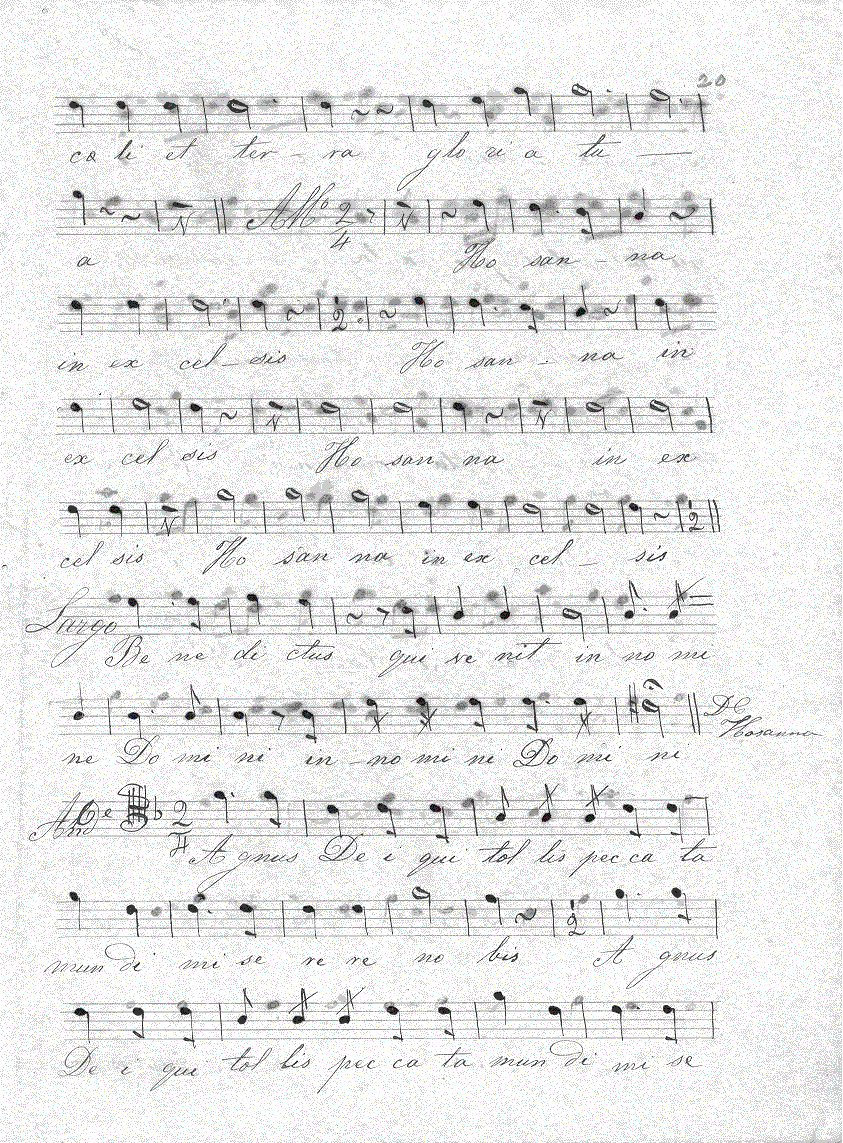 20
ca li et ter - ra glo ri a tu —
All° 2/4
a Ho san - na
in ex cel - sis Ho san - na in
ex cel sis Ho san na in ex
cel sis Ho san na in ex cel - sis
Largo
Be ne di ctus qui ve nit in no mi
ne Do mi ni in - no mi ne Do mi ni DC Hosanna
And^e 2/4
A gnus De i qui tol lis pec ca ta
mun di mi se re re no bis A gnus
De i qui tol lis pec ca ta mun di mi se